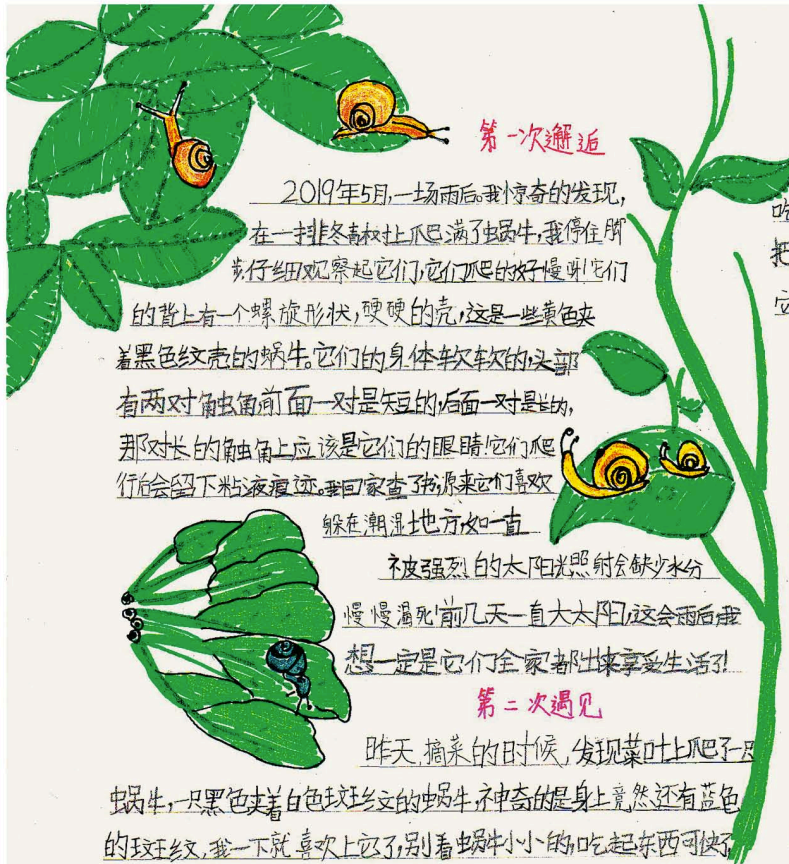 第一次邂逅
2019年5月,一场雨后。我惊奇的发现,
在一排冬青树上爬满了蜗牛,我停住脚
步仔细观察起它们,它们爬的好慢呀!它们
的背上有一个螺旋形状,硬硬的壳,这是一些黄色夹
着黑色纹壳的蜗牛。它们的身体软软的,头部
有两对触角,前面一对是短的,后面一对是长的,
那对长的触角上应该是它们的眼睛!它们爬
行后会留下粘液痕迹。我回家查了书,原来它们喜欢
躲在潮湿地方,如一直
被强烈的太阳光照射会缺少水分
慢慢渴死!前几天一直大太阳,这会雨后,我
想一定是它们全家都出来享受生活了!
第二次遇见
昨天,摘菜的时候,发现菜叶上爬了一只
蜗牛,一只黑色夹着白色斑纹的蜗牛,神奇的是身上竟然还有蓝色
的斑纹,我一下就喜欢上它了,别看蜗牛小小的,吃起东西可快了,
吃
把
它